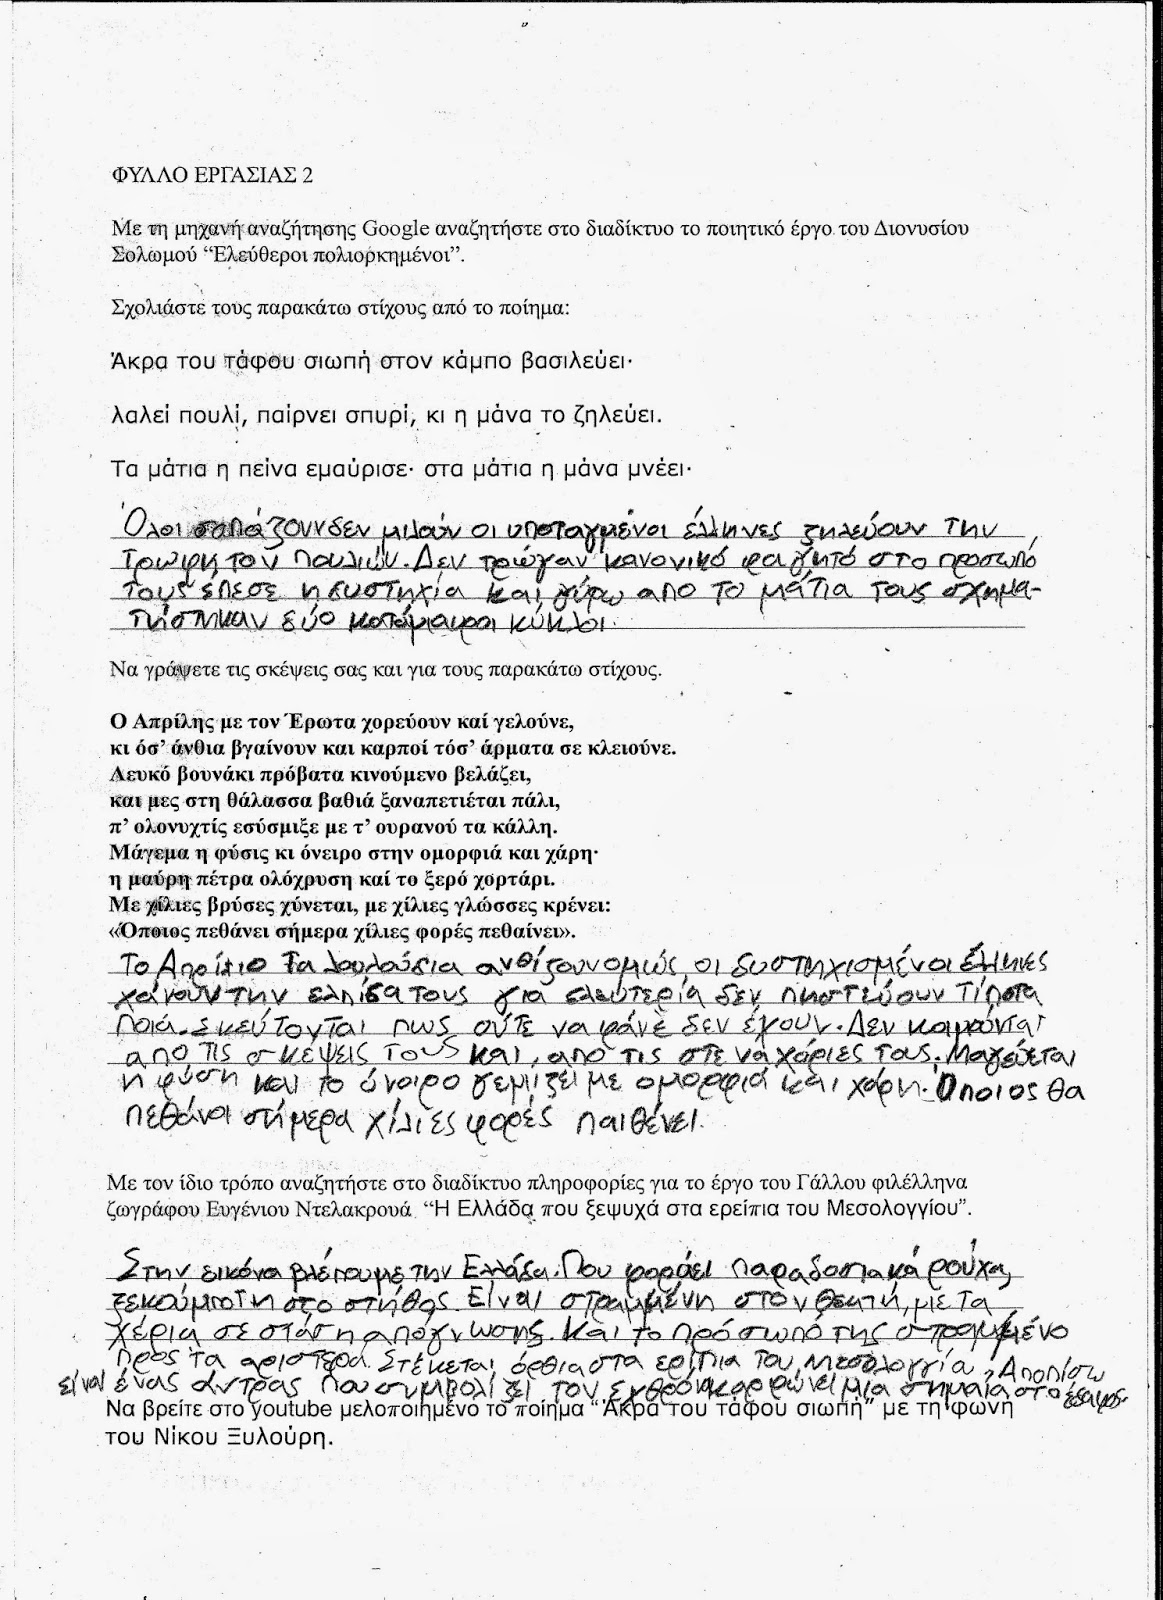 ΦΥΛΛΟ ΕΡΓΑΣΙΑΣ 2
Με τη μηχανή αναζήτησης Google αναζητήστε στο διαδίκτυο το ποιητικό έργο του Διονυσίου
Σολωμού “Ελεύθεροι πολιορκημένοι”.
Σχολιάστε τους παρακάτω στίχους από το ποίημα:
Άκρα του τάφου σιωπή στον κάμπο βασιλεύει·
λαλεί πουλί, παίρνει σπυρί, κι η μάνα το ζηλεύει.
Τα μάτια η πείνα εμαύρισε· στα μάτια η μάνα μνέει·
Όλοι δεν μιλούν οι υποταγμένοι έλληνες ζηλεύουν την
τρωφη τον πουλιών. Δεν τρώγαν κανονικό φαγητό στο προσωπό
τους έπεσε η δυστηχία και γύρω απο το μάτια τους σχημα-
τήστηκαν δύο κατάμαυροι κύκλοι.
Να γράψετε τις σκέψεις σας και για τους παρακάτω στίχους.
Ο Απρίλης με τον Έρωτα χορεύουν καί γελούνε,
κι όσ’ άνθια βγαίνουν και καρποί τόσ’ άρματα σε κλειούνε.
Λευκό βουνάκι πρόβατα κινούμενο βελάζει,
και μες στη θάλασσα βαθιά ξαναπετιέται πάλι,
π’ ολονυχτίς εσύσμιξε με τ’ ουρανού τα κάλλη.
Μάγεμα η φύσις κι όνειρο στην ομορφιά και χάρη·
η μαύρη πέτρα ολόχρυση καί το ξερό χορτάρι.
Με χίλιες βρύσες χύνεται, με χίλιες γλώσσες κρένει:
«Όποιος πεθάνει σήμερα χίλιες φορές πεθαίνει».
Το Απρίλιο τα λουλούδια ανθίζουν ομώς, οι δυστηχισμένοι έλληνες
χάνουν την ελπίδα τους για ελευτερία δεν πηστεύουν τίποτα
ποιά. Σκεύτονται πως ούτε να φάνε δεν έχουν. Δεν κοιμούνται
απο τις σκέψεις τους και, από τις στεναχόριες τους. Μαγεύεται
η φύση και το όνειρο γεμίζει με ομορφιά και χάρη. Όποιος θα
πεθάνει σήμερα χίλιες φορές παιθένει.
Με τον ίδιο τρόπο αναζητήστε στο διαδίκτυο πληροφορίες για το έργο του Γάλλου φιλέλληνα
ζωγράφου Ευγένιου Ντελακρουά “Η Ελλάδα που ξεψυχά στα ερείπια του Μεσολογγίου”.
Στην εικόνα βλέπουμε την Ελλάδα. Που φοράει παραδοσιακά ρούχα,
ξεκούμπωτη στο στήθος. Είναι στραμμένη στον θεατή, με τα
χέρια σε στάση απόγνωσης. Και το πρόσωπό της στραμμένο
προς τα αριστερά. Στέκεται όρθια στα ερίπια του Μεσολογγία, Αποπίσω
είναι ένας άντρας που συμβολίζει τον εχθρό καρφώνει μια σημαία στο έδαφος.
Να βρείτε στο youtube μελοποιημένο το ποίημα “Άκρα του τάφου σιωπή” με τη φωνή
του Νίκου Ξυλούρη.